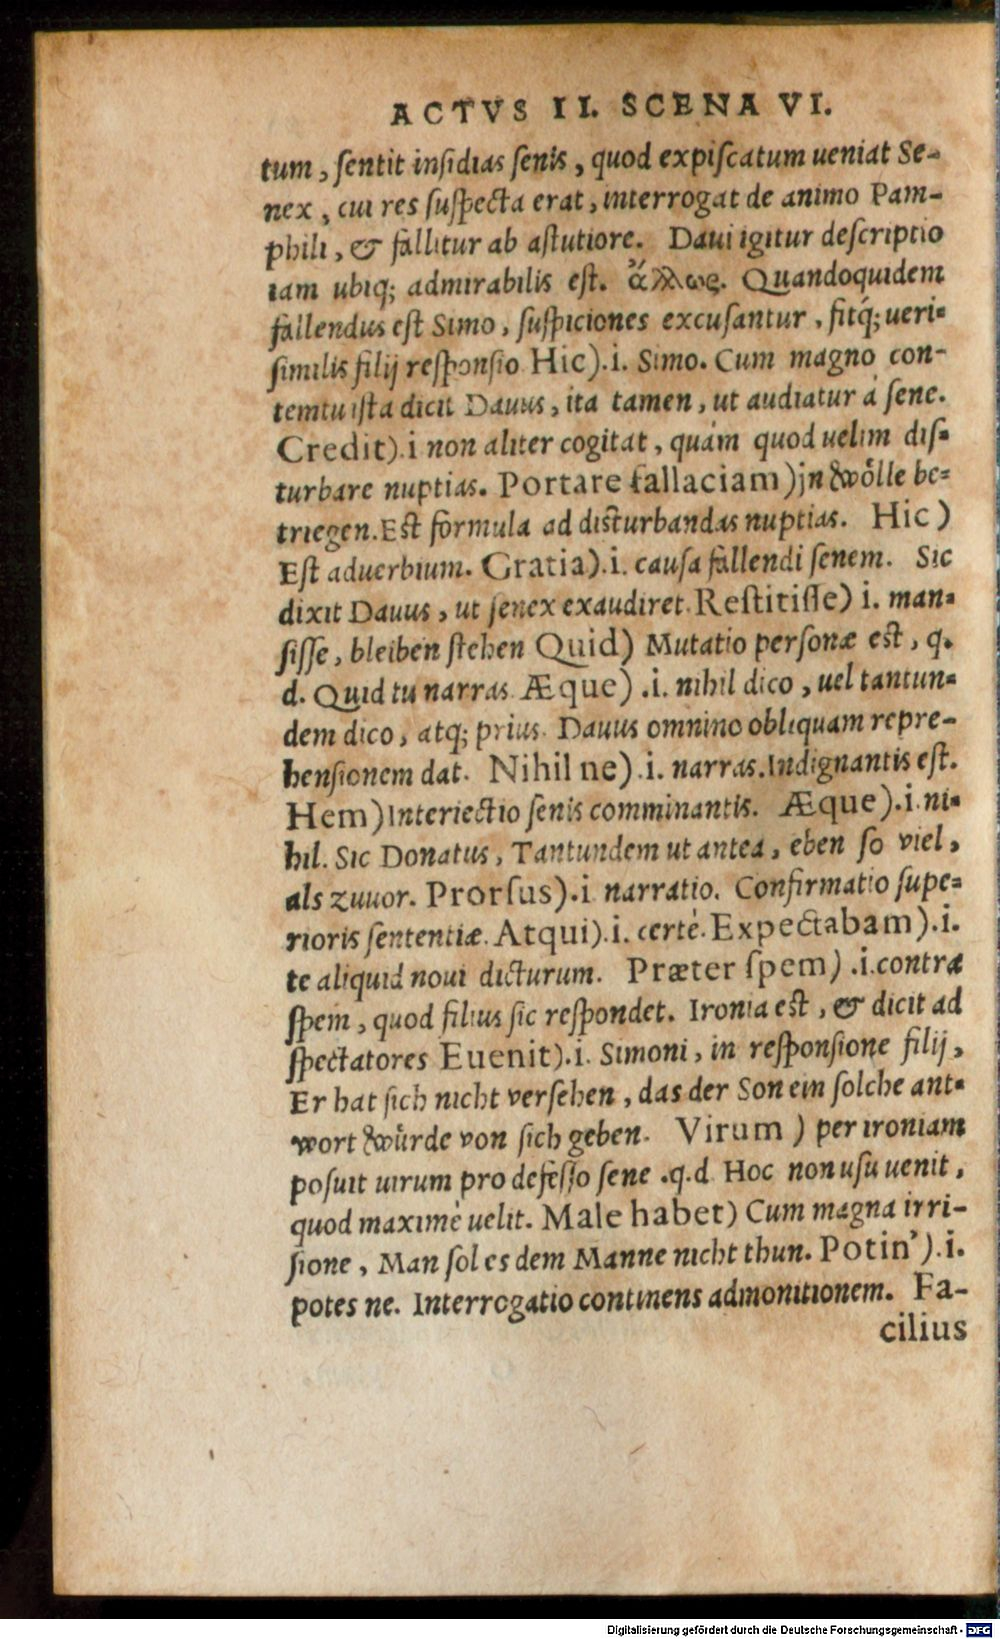 ACTVS II. SCENA VI.
tum, ſentit inſidias ſenis, quod expiſcatum ueniat Se-
nex, cui res ſuſpecta erat, interrogat de animo Pam-
phili, & fallitur ab aſtutiore. Daui igitur deſcriptio
iam ubiq; admirabilis eſt. ἄλλως. Quandoquidem
fallendus eſt Simo, ſuſpiciones excuſantur, fitq́; ueri-
ſimilis filij reſponſio Hic).i. Simo. Cum magno con-
temtu iſta dicit Dauus, ita tamen, ut audiatur à ſene.
Credit).i non aliter cogitat, quàm quod uelim diſ-
turbare nuptias. Portare fallaciam) jn wölle be-
triegen. Eſt formula ad disturbandas nuptias. Hic)
Eſt aduerbium. Gratia).i. cauſa fallendi ſenem. Sic
dixit Dauus, ut ſenex exaudiret. Reſtitiſſe) i. man-
ſiſſe, bleiben ſtehen Quid) Mutatio perſonæ eſt, q.
d. Quid tu narras Æque) .i. nihil dico, uel tantun-
dem dico, atq; prius. Dauus omnino obliquam repre-
henſionem dat. Nihil ne).i. narras. Indignantis eſt.
Hem) Interiectio ſenis comminantis. Æque).i. ni-
hil. Sic Donatus, Tantundem ut antea, eben ſo viel,
als zuuor. Prorſus).i narratio. Confirmatio ſupe-
rioris ſententiæ. Atqui).i. certè. Expectabam).i.
te aliquid noui dicturum. Præter ſpem) .i. contra
ſpem, quod filius ſic reſpondet. Ironia eſt, & dicit ad
ſpectatores Euenit).i. Simoni, in reſponſione filij,
Er hat ſich nicht verſehen, das der Son ein ſolche ant-
wort würde von ſich geben. Virum) per ironiam
poſuit uirum pro defeſſo ſene .q.d Hoc non uſu uenit,
quod maximè uelit. Male habet) Cum magna irri-
ſione, Man ſol es dem Manne nicht thun. Potin').i.
potes ne. Interrogatio continens admonitionem. Fa-
cilius
Digitalisierung gefördert durch die Deutsche Forschungsgemeinschaft - DFG